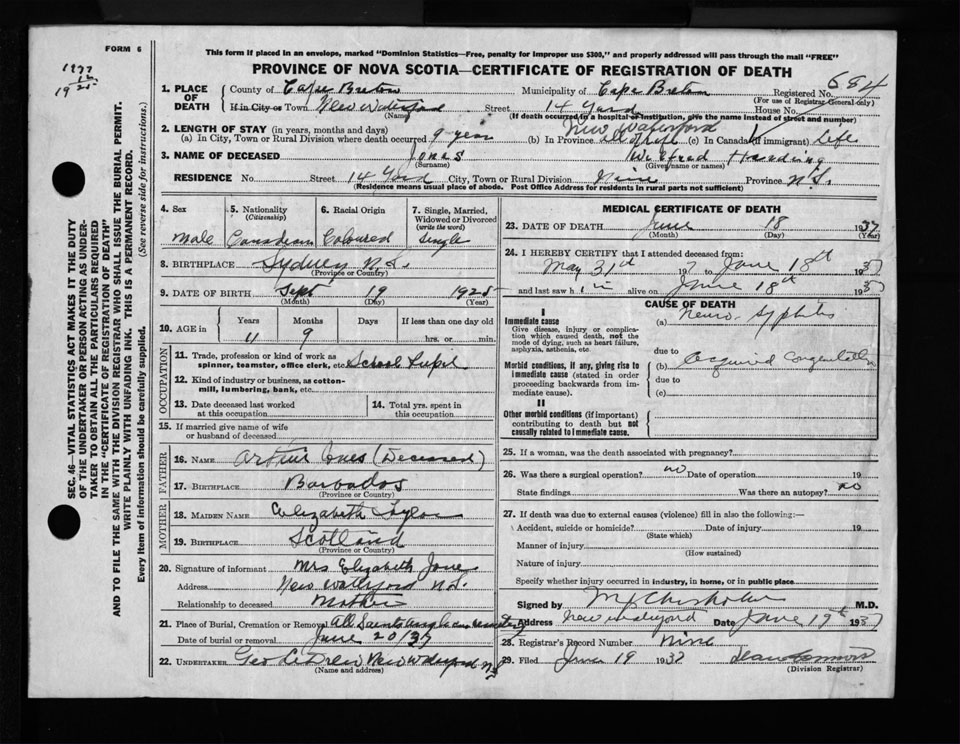 FORM 6
This form if placed in an envelope, marked "Dominion Statistics—Free, penalty for improper use $300," and properly addressed will pass through the mail "FREE"
PROVINCE OF NOVA SCOTIA—CERTIFICATE OF REGISTRATION OF DEATH
1937
12
19 25
1. PLACE OF DEATH
County of Cape Breton Municipality of Cape Breton Registered No. 684
(For use of Registrar-General only)
If in City or Town New Waterford Street 14 Yard House No.
(Name) (If death occurred in a hospital or institution, give the name instead of street and number)
New Waterford
2. LENGTH OF STAY (in years, months and days)
(a) In City, Town or Rural Division where death occurred 9 year (b) In Province (c) In Canada (if immigrant) Life
3. NAME OF DECEASED Jones Wilfred Harding
(Surname) (Given names or names)
RESIDENCE No. Street 14 Yard City, Town or Rural Division Nine Province N.S.
(Residence means usual place of abode. Post Office Address for residents in rural parts not sufficient)
4. Sex
Male
5. Nationality
(Citizenship)
Canadian
6. Racial Origin
Coloured
7. Single, Married, Widowed or Divorced
(write the word)
Single
8. BIRTHPLACE Sydney N.S.
(Province or Country)
9. DATE OF BIRTH Sept 19 1925
(Month) (Day) (Year)
10. AGE in
Years Months Days If less than one day old
11 9 hrs. or min.
OCCUPATION
11. Trade, profession or kind of work as
spinner, teamster, office clerk, etc. School Pupil
12. Kind of industry or business, as cotton-
mill, lumbering, bank, etc.
13. Date deceased last worked
at this occupation
14. Total yrs. spent in
this occupation
15. If married give name of wife
or husband of deceased
FATHER
16. NAME Arthur Jones (Deceased)
17. BIRTHPLACE Barbados
(Province or Country)
MOTHER
18. MAIDEN NAME Elizabeth Taylor
19. BIRTHPLACE Scotland
(Province or Country)
20. Signature of informant Mrs Elizabeth Jones
Address New Waterford N.S.
Relationship to deceased Mother
21. Place of Burial, Cremation or Removal All Saints Anglican cemetery
Date of burial or removal June 20/37
22. UNDERTAKER Geo New Waterford N.S.
(Name and address)
MEDICAL CERTIFICATE OF DEATH
23. DATE OF DEATH June 18 1937
(Month) (Day) (Year)
24. I HEREBY CERTIFY that I attended deceased from
May 31st 1937 to June 18th 1937
and last saw him alive on June 18th 1937
CAUSE OF DEATH
I
Immediate cause
Give disease, injury or complication which caused death, not the mode of dying, such as heart failure, asphyxia, asthenia, etc.
(a) Neuro-syphilis
due to
Morbid conditions, if any, giving rise to immediate cause (stated in order proceeding backwards from immediate cause).
(b) Acquired Congenitally
due to
(c)
II
Other morbid conditions (if important) contributing to death but not causally related to immediate cause.
25. If a woman, was the death associated with pregnancy?
26. Was there a surgical operation? no Date of operation 19
State findings Was there an autopsy? no
27. If death was due to external causes (violence) fill in also the following:—
Accident, suicide or homicide? Date of injury 19
(State which)
Manner of injury
(How sustained)
Nature of injury
Specify whether injury occurred in industry, in home, or in public place
Signed by Chisholm M.D.
Address New Waterford Date June 19th 1937
28. Registrar's Record Number Nine
29. Filed June 19 1937
(Division Registrar)
SEC. 46—VITAL STATISTICS ACT MAKES IT THE DUTY
OF THE UNDERTAKER OR PERSON ACTING AS UNDER-
TAKER TO OBTAIN ALL THE PARTICULARS REQUIRED
IN THE "CERTIFICATE OF REGISTRATION OF DEATH"
AND TO FILE THE SAME WITH THE DIVISION REGISTRAR WHO SHALL ISSUE THE BURIAL PERMIT.
WRITE PLAINLY WITH UNFADING INK. THIS IS A PERMANENT RECORD.
Every item of information should be carefully supplied. (See reverse side for instructions.)